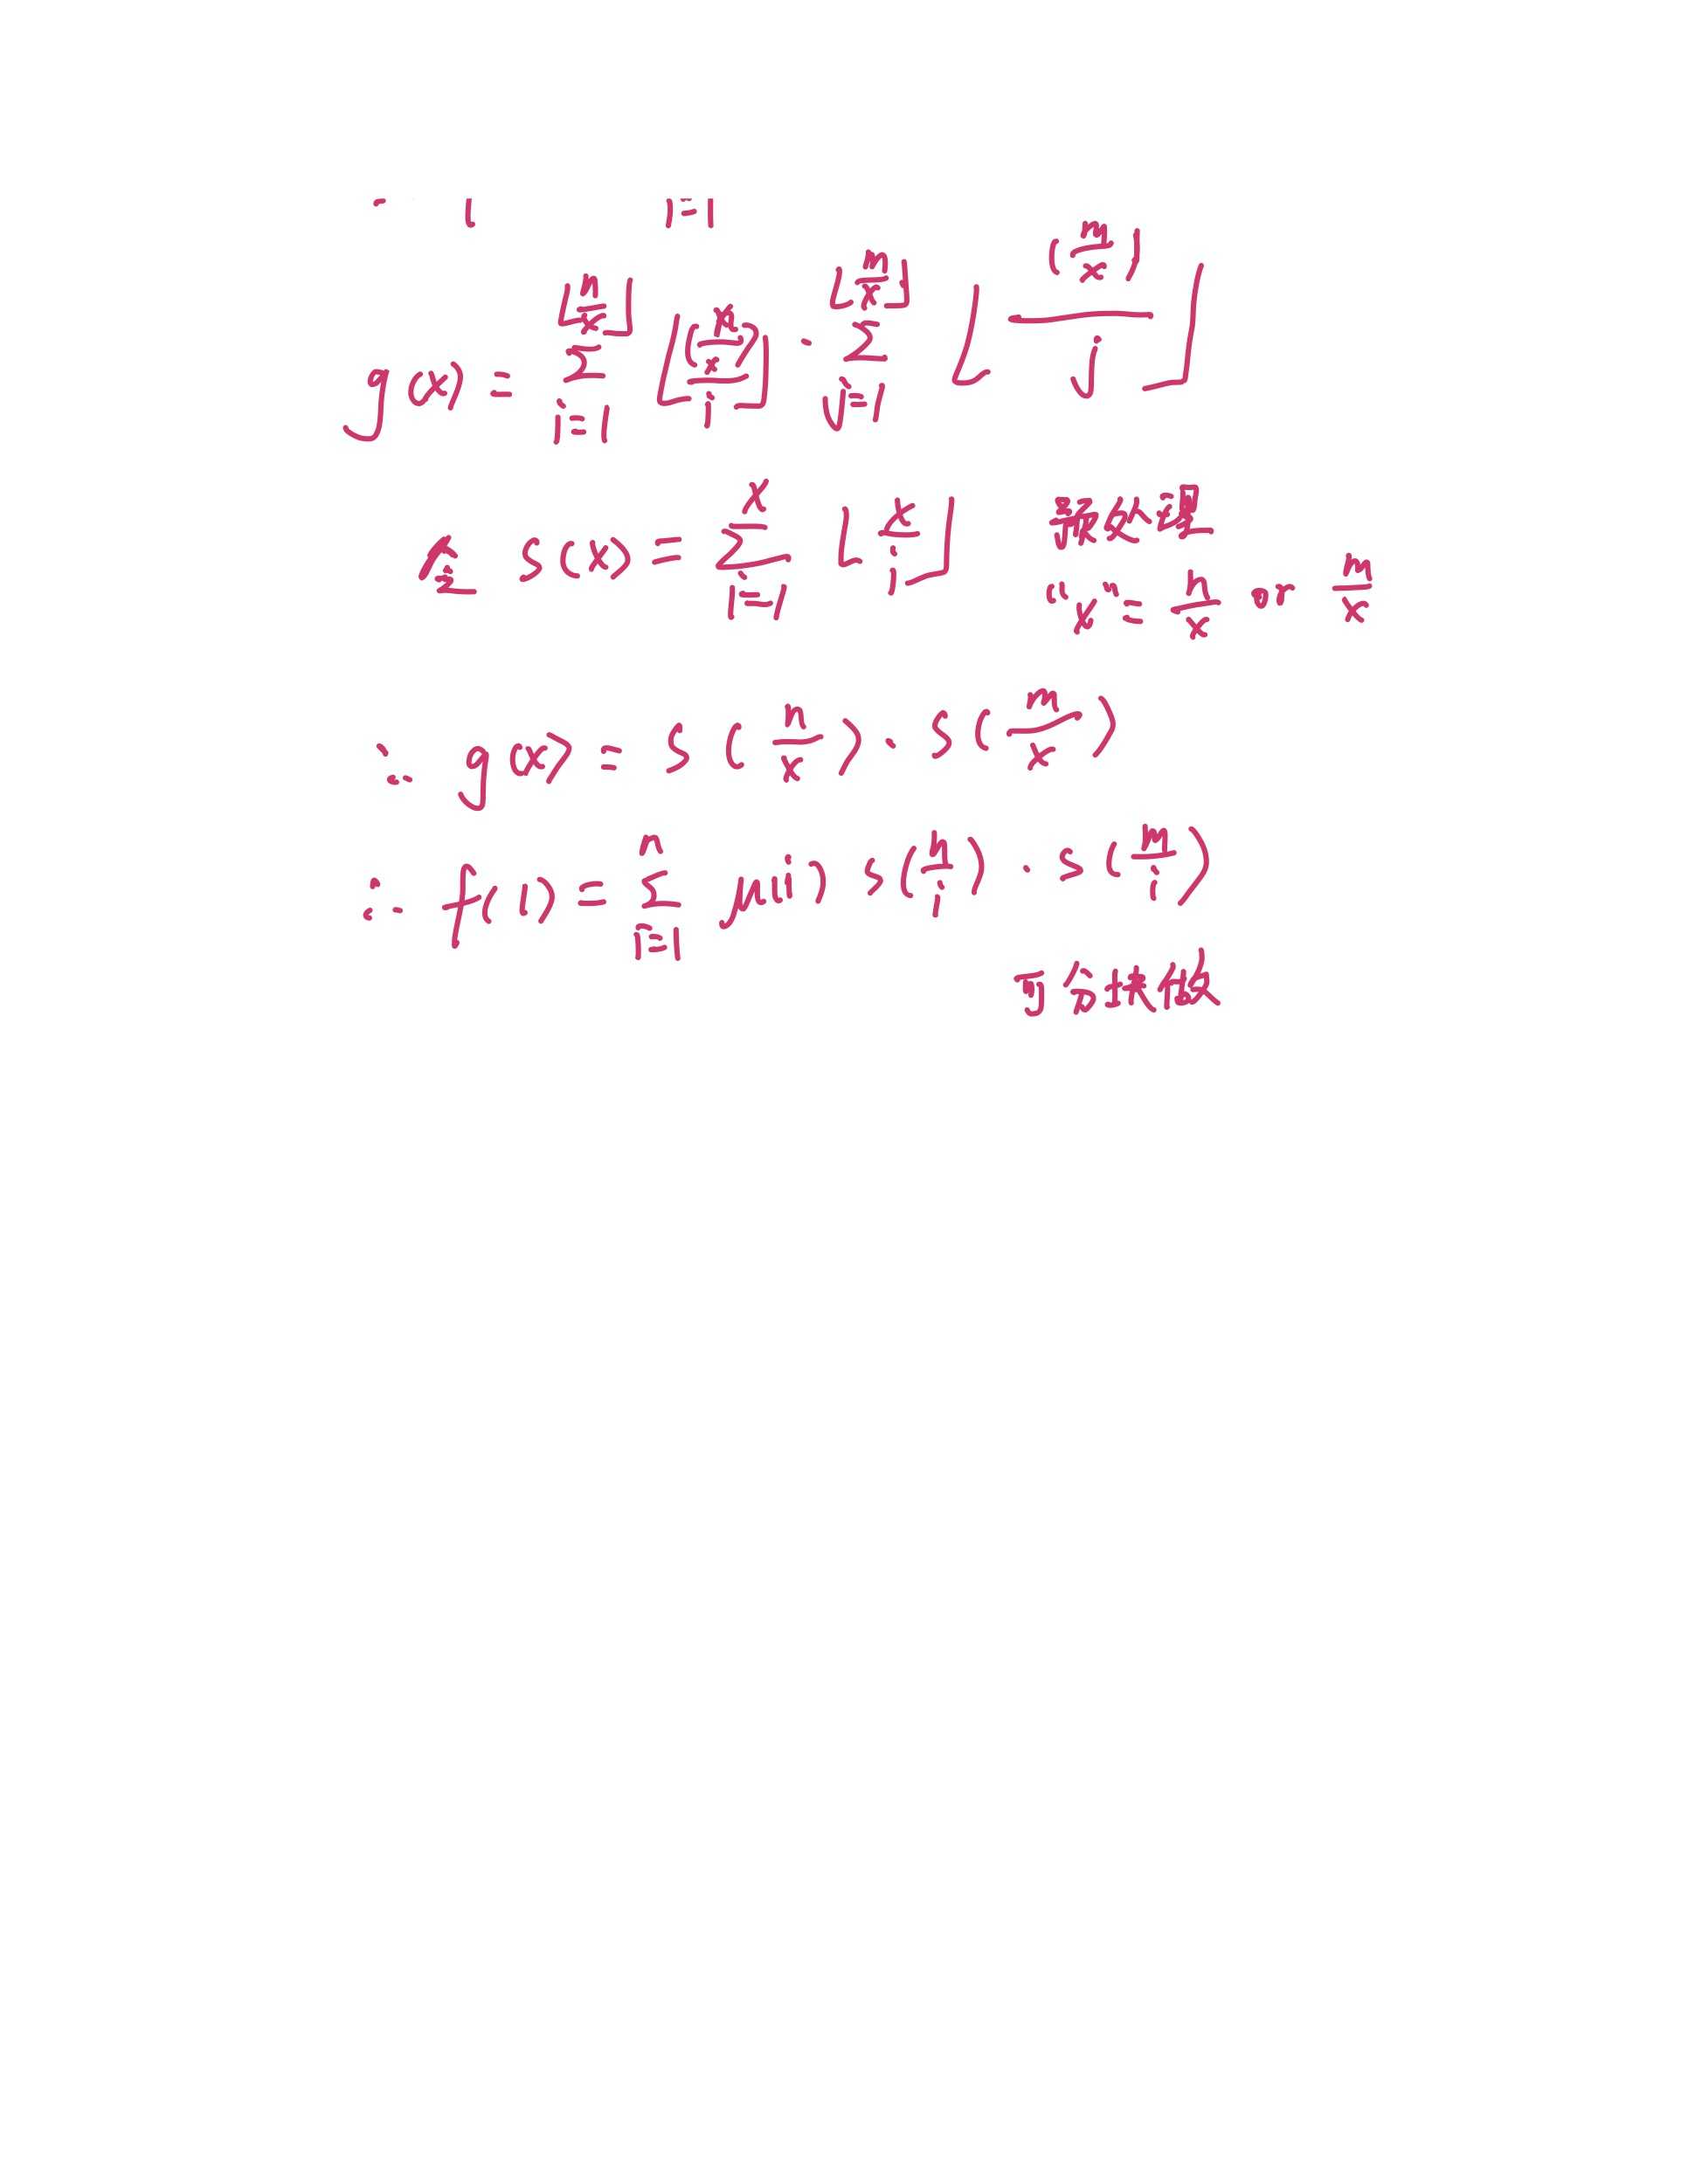 i=1
g(x) = \sum_{i=1}^{⌊n/x⌋} ⌊(n/x)/i⌋ · \sum_{j=1}^{⌊m/x⌋} ⌊(m/x)/j⌋
s(x) = \sum_{i=1}^{x} ⌊x/i⌋ 预处理
"x" = n/x or m/x
∵ g(x) = s(n/x) · s(m/x)
∴ f(1) = \sum_{i=1}^{n} μ(i) s(n/i) · s(m/i)
可分块做